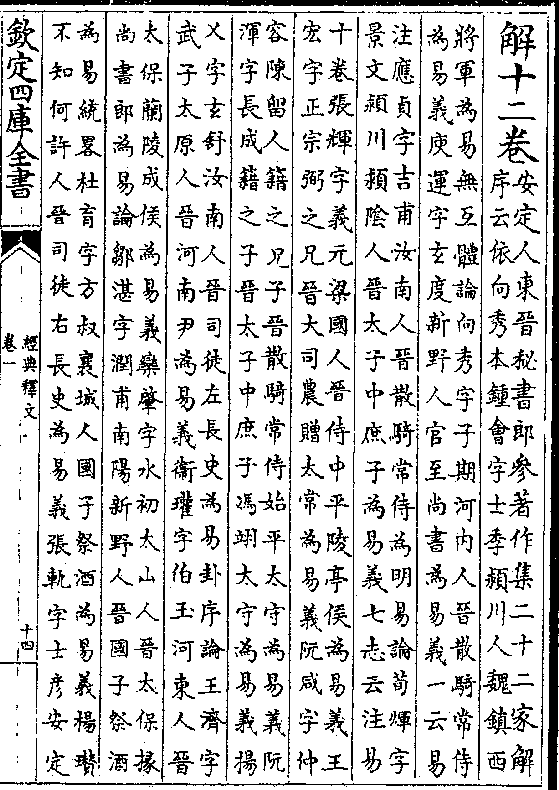 解十二卷
安定人東晉秘書郎參著作集二十二家解
序云依向秀本鍾會字士季頴川人魏鎮西
將軍為易無互體論向秀字子期河内人晉散騎常侍
為易義庾運字玄度新野人官至尚書為易義一云易
注應貞字吉甫汝南人晉散騎常侍為明易論荀煇字
景文頴川頴陰人晉太子中庶子為易義七志云注易
十卷張輝字義元梁國人晉侍中平陵亭侯為易義王
宏字正宗弼之兄晉大司農贈太常為易義阮咸字仲
容陳留人籍之兄子晉散騎常侍始平太守為易義阮
渾字長成籍之子晉太子中庶子馮翊太守為易義揚
乂字玄舒汝南人晉司徒左長史為易卦序論王濟字
武子太原人晉河南尹為易義衞瓘字伯玉河東人晉
太保蘭陵成侯為易義欒肇字水初太山人晉太保掾
尚書郎為易論鄒湛字潤甫南陽新野人晉國子祭酒
為易統畧杜育字方叔襄城人國子祭酒為易義楊瓚
不知何許人晉司徒右長史為易義張軌字士彦安定
欽定四庫全書
經典釋文
卷一
十四